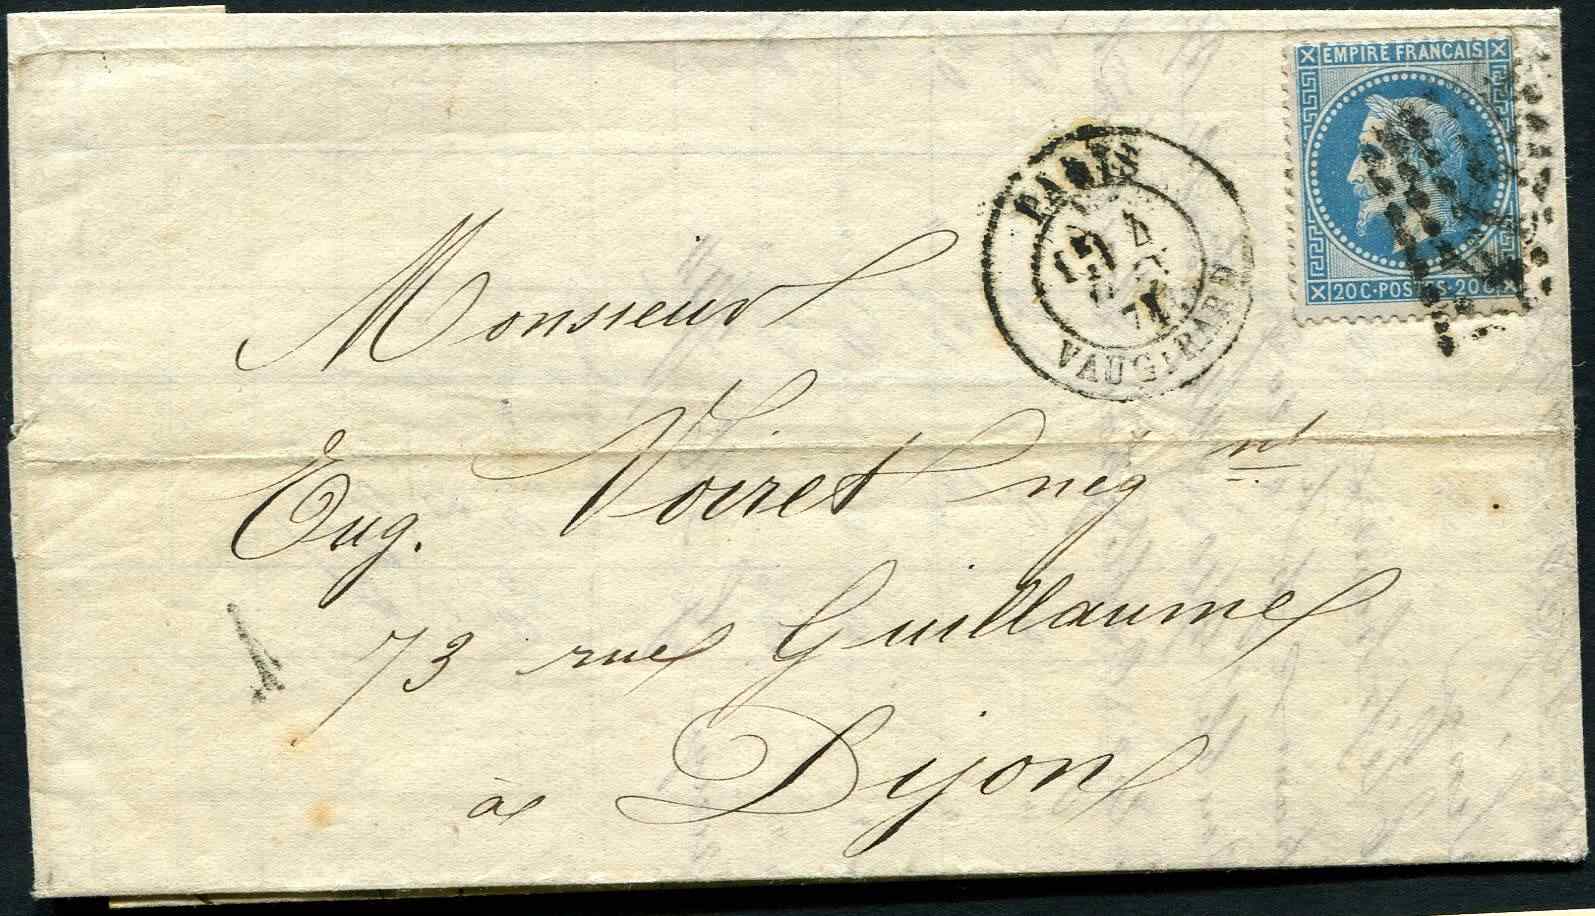 EMPIRE FRANÇAIS
20 C · POSTES · 20 C
PARIS
4
71
VAUGIRARD
Monsieur
Eug. Voiret neg nt
73 rue Guillaume
à Dijon
1